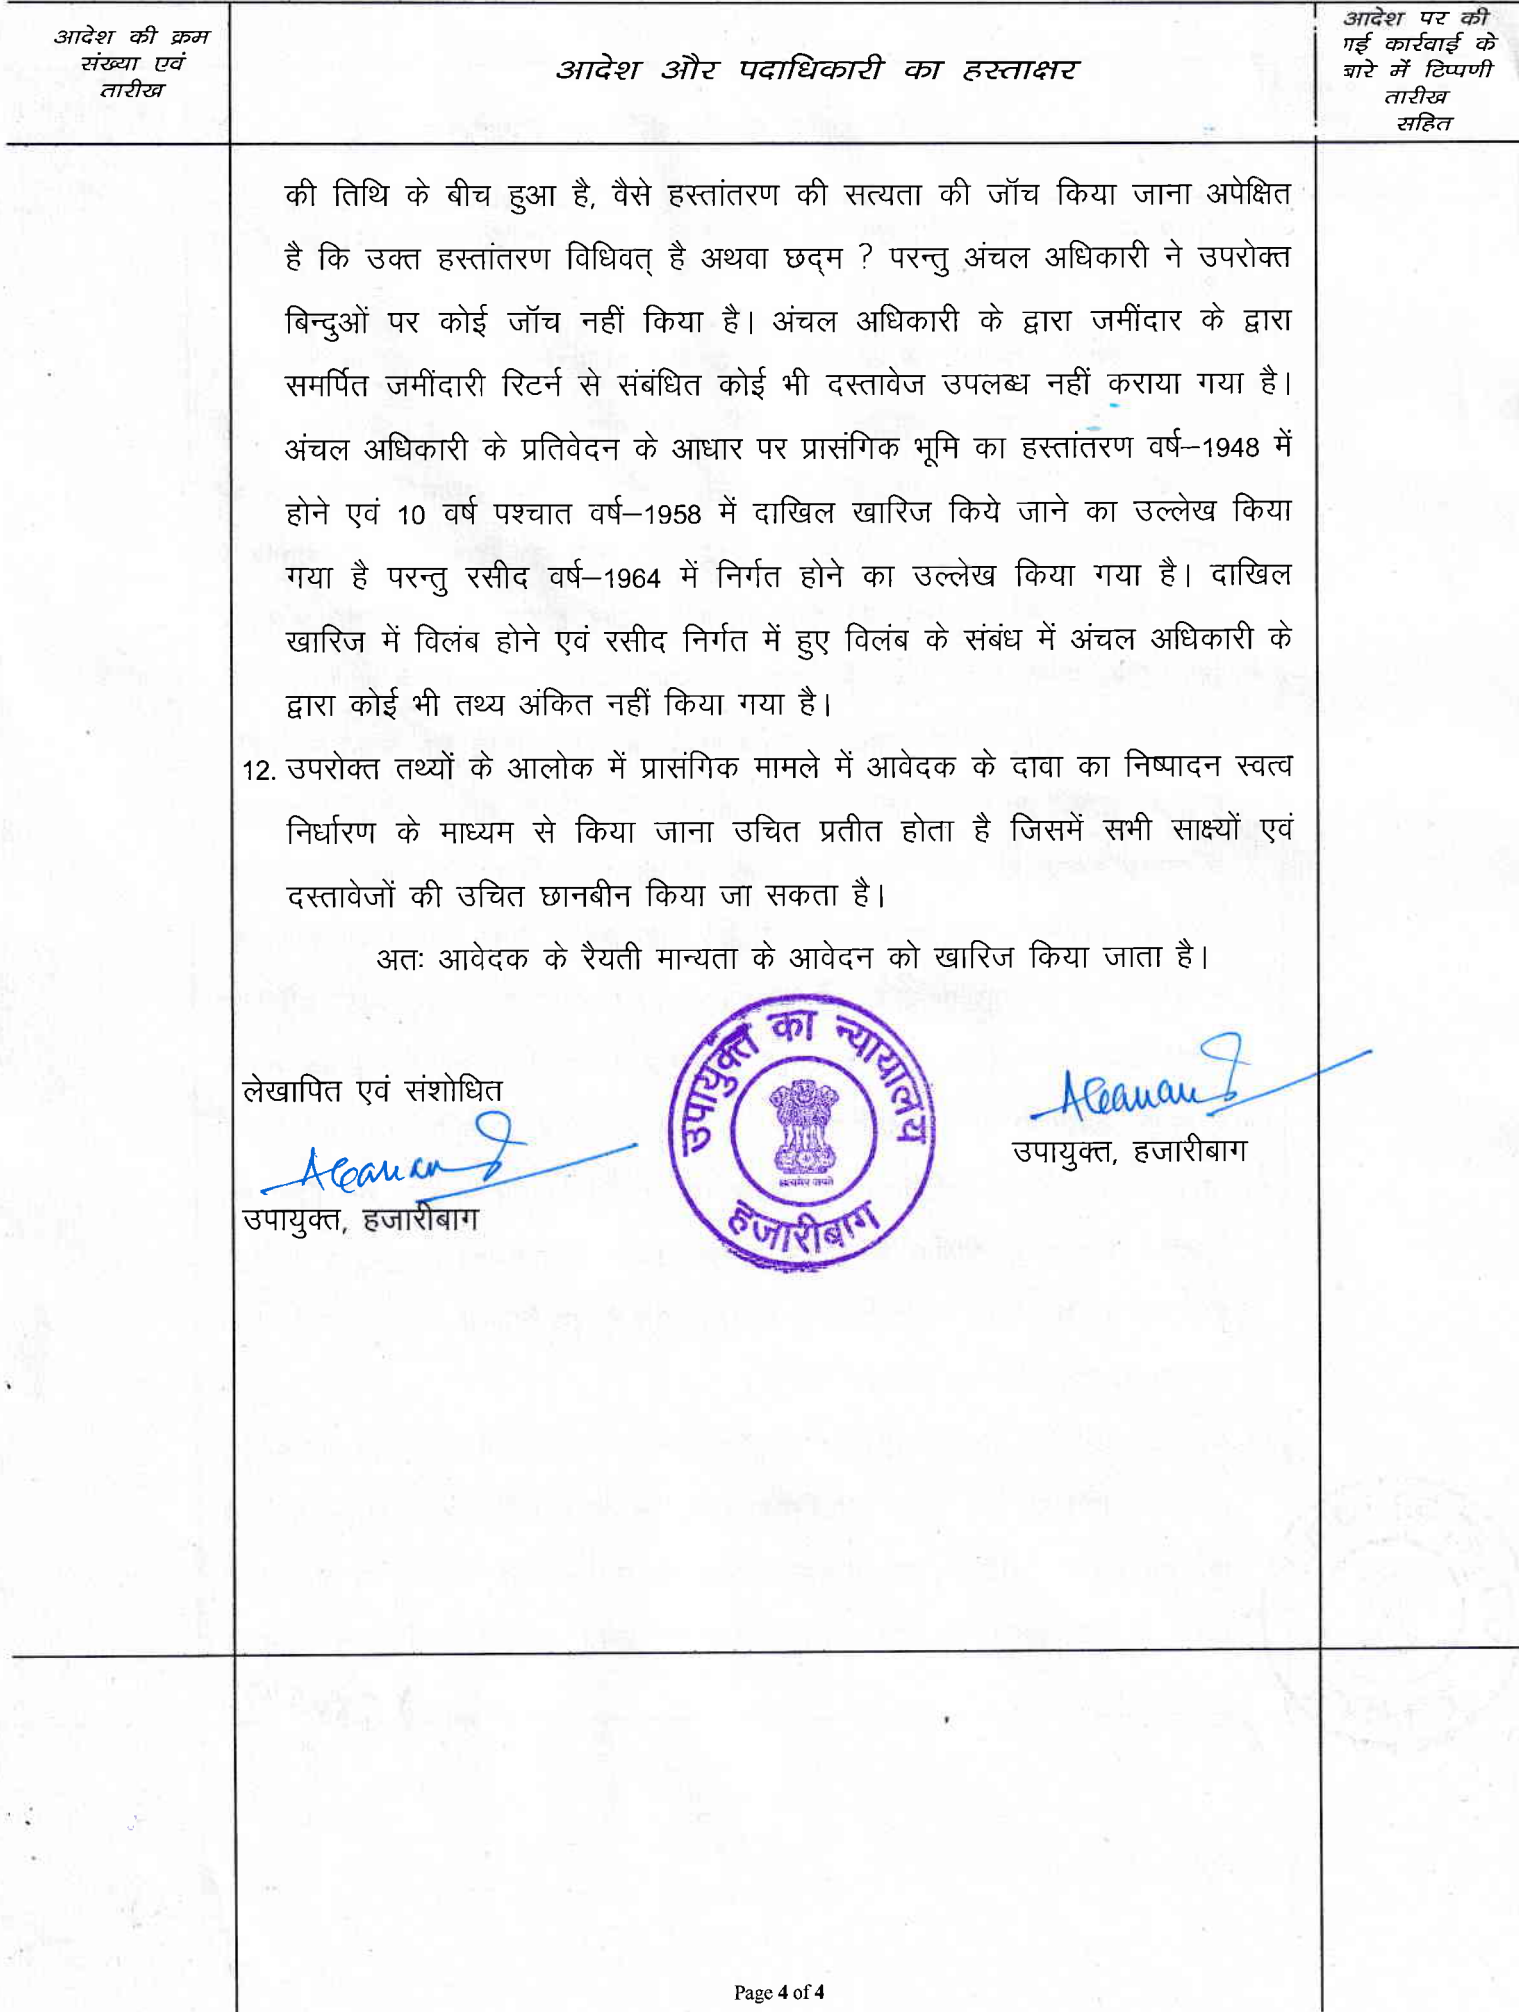 आदेश की क्रम
संख्या एवं
तारीख
आदेश और पदाधिकारी का हस्ताक्षर
आदेश पर की
गई कार्रवाई के
बारे में टिप्पणी
तारीख
सहित
की तिथि के बीच हुआ है, वैसे हस्तांतरण की सत्यता की जॉच किया जाना अपेक्षित
है कि उक्त हस्तांतरण विधिवत् है अथवा छद्म ? परन्तु अंचल अधिकारी ने उपरोक्त
बिन्दुओं पर कोई जॉच नहीं किया है। अंचल अधिकारी के द्वारा जमींदार के द्वारा
समर्पित जमींदारी रिटर्न से संबंधित कोई भी दस्तावेज उपलब्ध नहीं कराया गया है।
अंचल अधिकारी के प्रतिवेदन के आधार पर प्रासंगिक भूमि का हस्तांतरण वर्ष–1948 में
होने एवं 10 वर्ष पश्चात वर्ष–1958 में दाखिल खारिज किये जाने का उल्लेख किया
गया है परन्तु रसीद वर्ष–1964 में निर्गत होने का उल्लेख किया गया है। दाखिल
खारिज में विलंब होने एवं रसीद निर्गत में हुए विलंब के संबंध में अंचल अधिकारी के
द्वारा कोई भी तथ्य अंकित नहीं किया गया है।
12. उपरोक्त तथ्यों के आलोक में प्रासंगिक मामले में आवेदक के दावा का निष्पादन स्वत्व
निर्धारण के माध्यम से किया जाना उचित प्रतीत होता है जिसमें सभी साक्ष्यों एवं
दस्तावेजों की उचित छानबीन किया जा सकता है।
अतः आवेदक के रैयती मान्यता के आवेदन को खारिज किया जाता है।
उपायुक्त का न्यायालय
हजारीबाग
लेखापित एवं संशोधित
उपायुक्त, हजारीबाग
उपायुक्त, हजारीबाग
Page 4 of 4